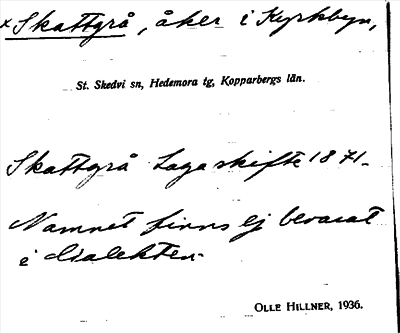 × Skattgrå, åker i Kyrkbyn,
St. Skedvi sn, Hedemora tg, Kopparbergs län.
Skattgrå Laga skifte 1871.
Namnet finns ej bevarat
i dialekten.
OLLE HILLNER, 1936.